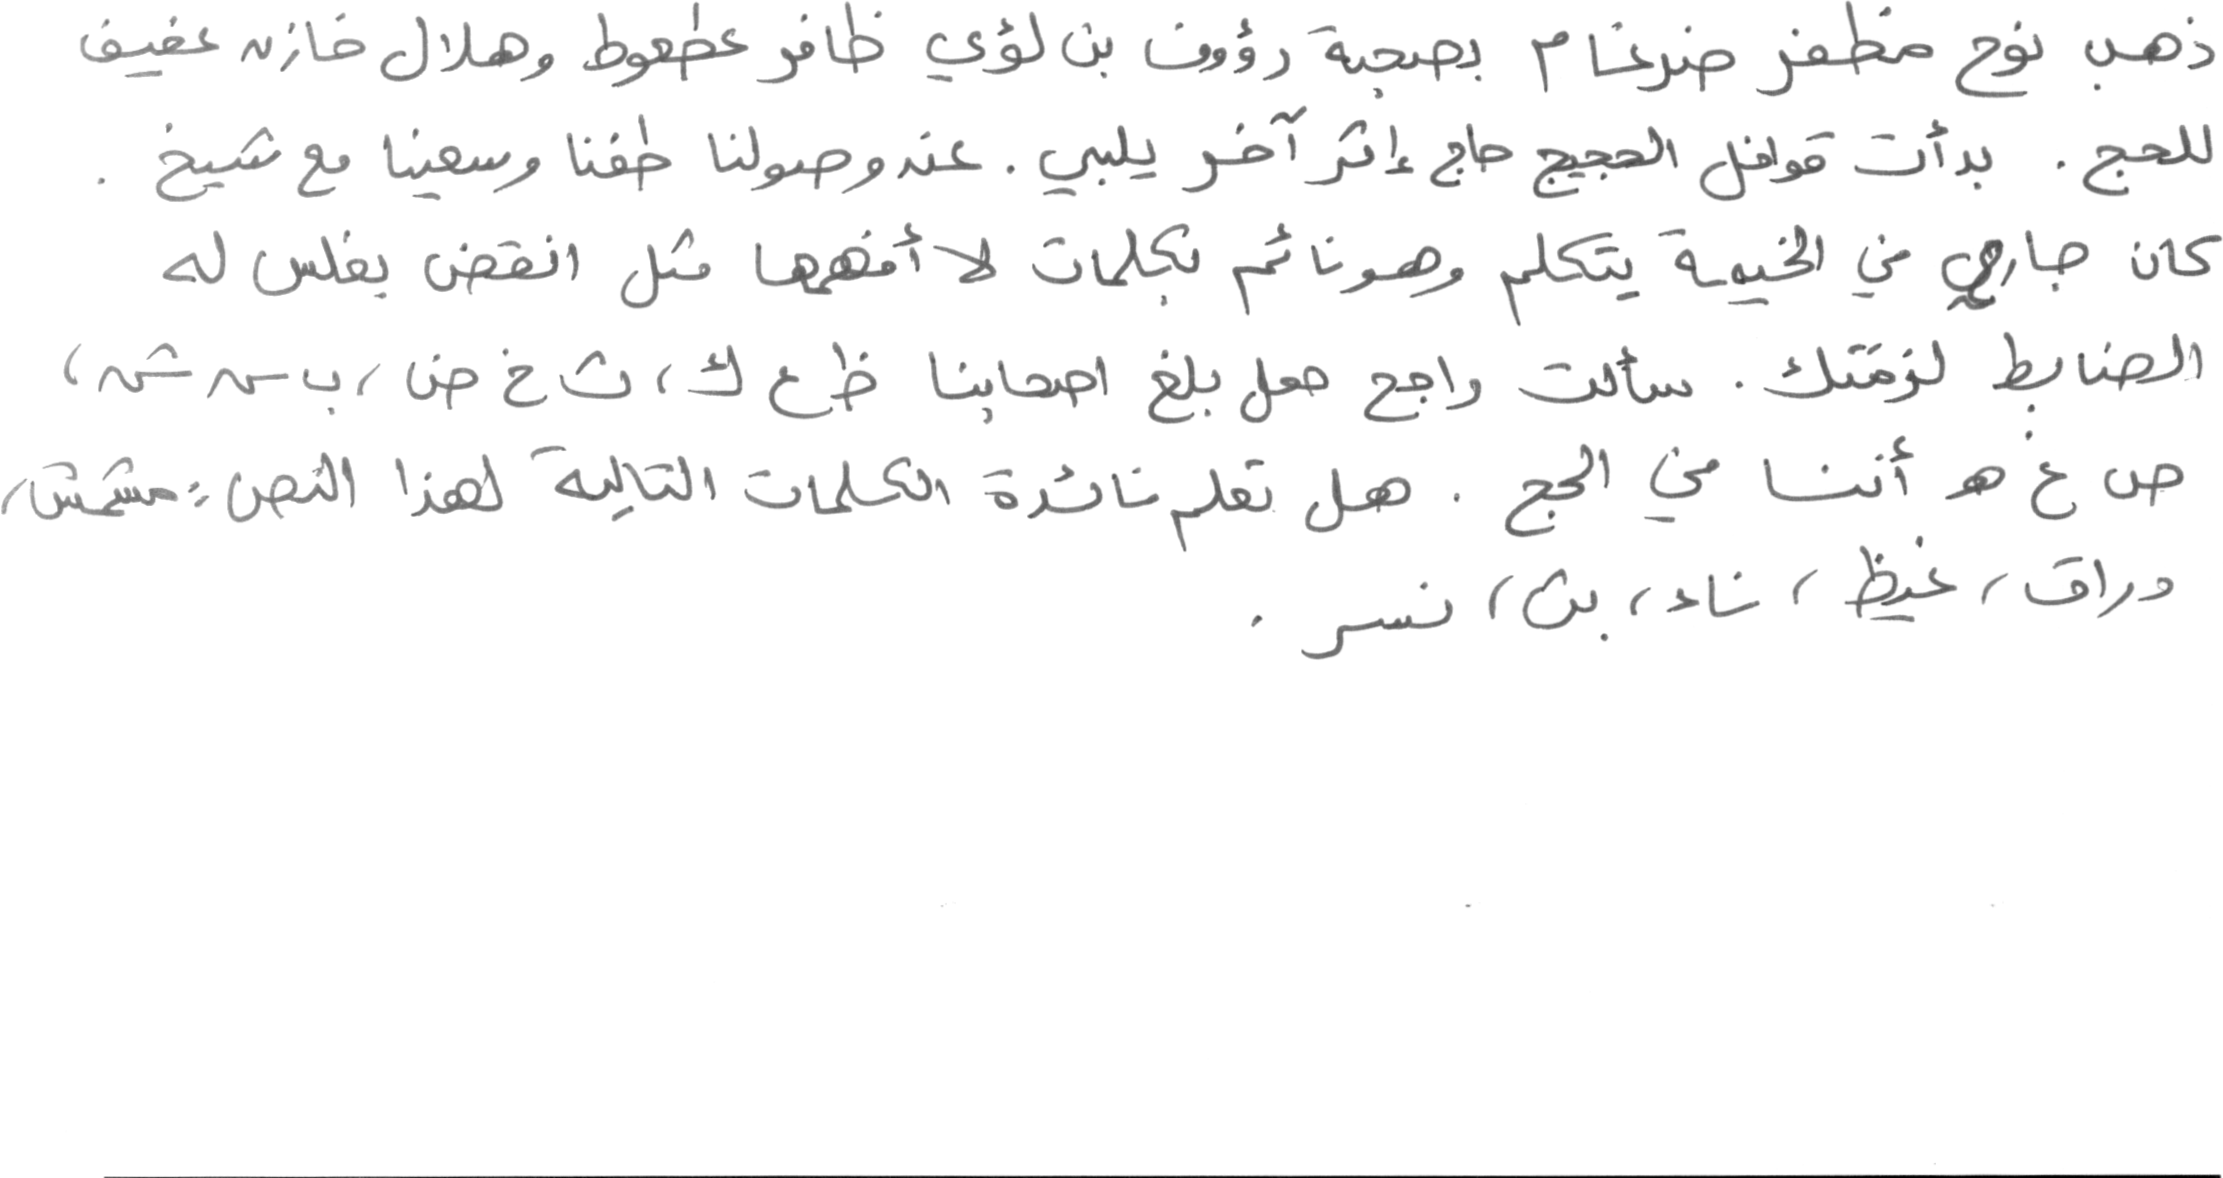 ذهب نوح مظفر ضرغام بصحبة رؤوف بن لؤي ظافر عطعوط وهلال خازن عفيف
للحج . بدأت قوافل الحجيج حاج إثر آخر يلبي . عند وصولنا طفنا وسعينا مع شيخ .
كان جاري في الخيمة يتكلم وهو نائم بكلمات لا أفهمها مثل انقض بغلس له
الضابط لزقتك . سألت راجح هل بلغ اصحابنا ظ ع ك ، ث خ ض ، ب س ش ،
ص غ هـ أننا في الحج . هل تعلم فائدة الكلمات التالية لهذا النص : مشمش ،
وراق ، غيظ ، ناء ، بث ، نسر .